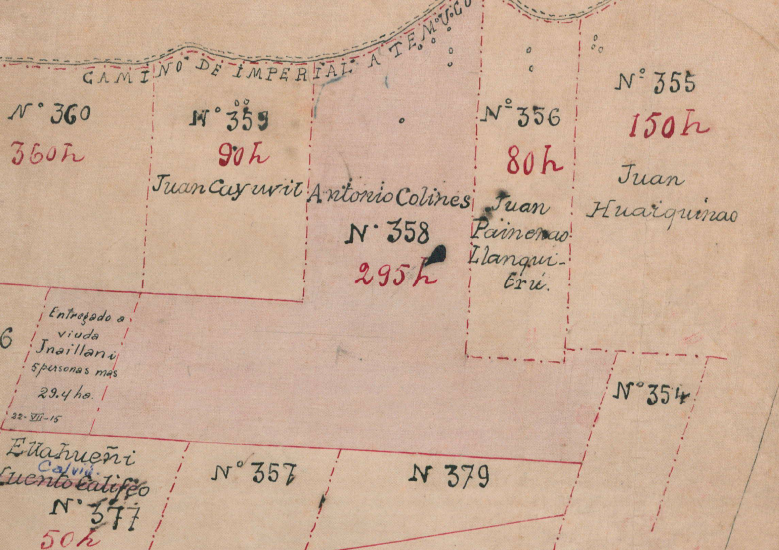 CAMINO DE IMPERIAL A TEMUCO
N° 360
360h
N° 359
90h
Juan Cayuvil
Antonio Colines
N° 358
295h
N° 356
80h
Juan
Painenao
Llanqui-
N° 355
150h
Juan
Huaiquinao
6
Entregado a
viuda
Jnaillan i
5 personas más
29.4 ha.
22-VIII-15
N° 354
N° 357
N 379
Calvú
N° 377
50h